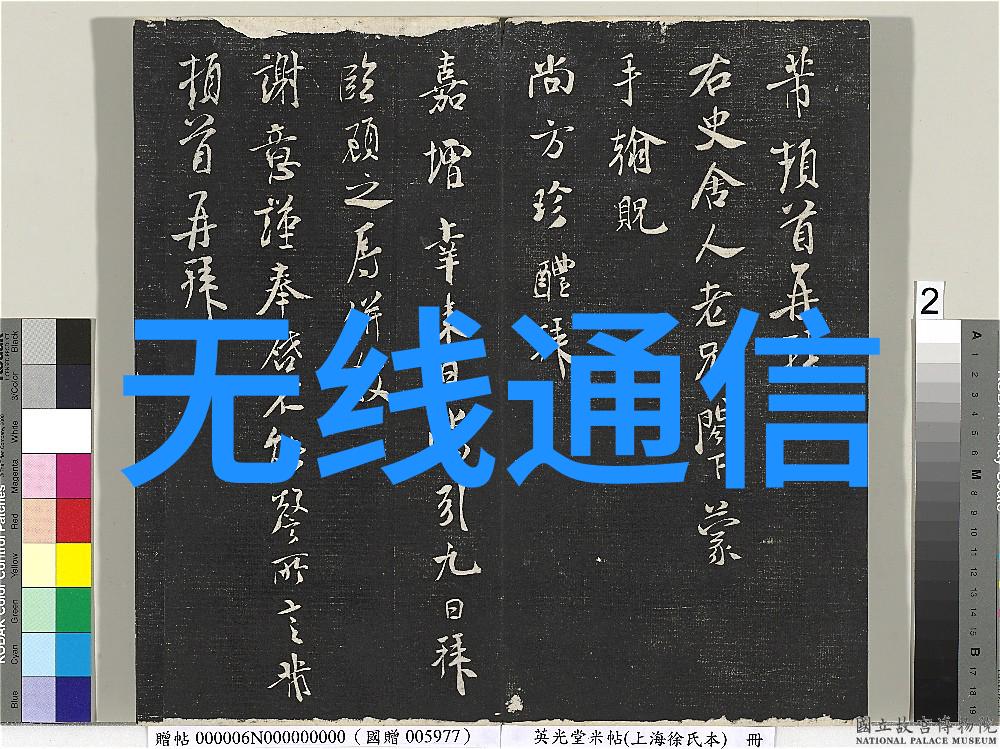 芾頓首再拜
右史舍人老兄閤下蒙
手翰貺
尚方珍醴拜
嘉增幸來日
引九日拜
臨顧之
謝意謹奉啓不
所言芾
頓首再拜
无线通信
2
Black
3/Color
White
Magenta
Red
Yellow
Green
Cyan
Blue
A
1
2
3
4
5
6
M
8
9
10
11
12
13
14
15
B
17
18
19
贈帖 000006N000000000 (國贈 005977)
英光堂米帖(上海徐氏本) 冊
國立故宮博物院
NATIONAL PALACE MUSEUM